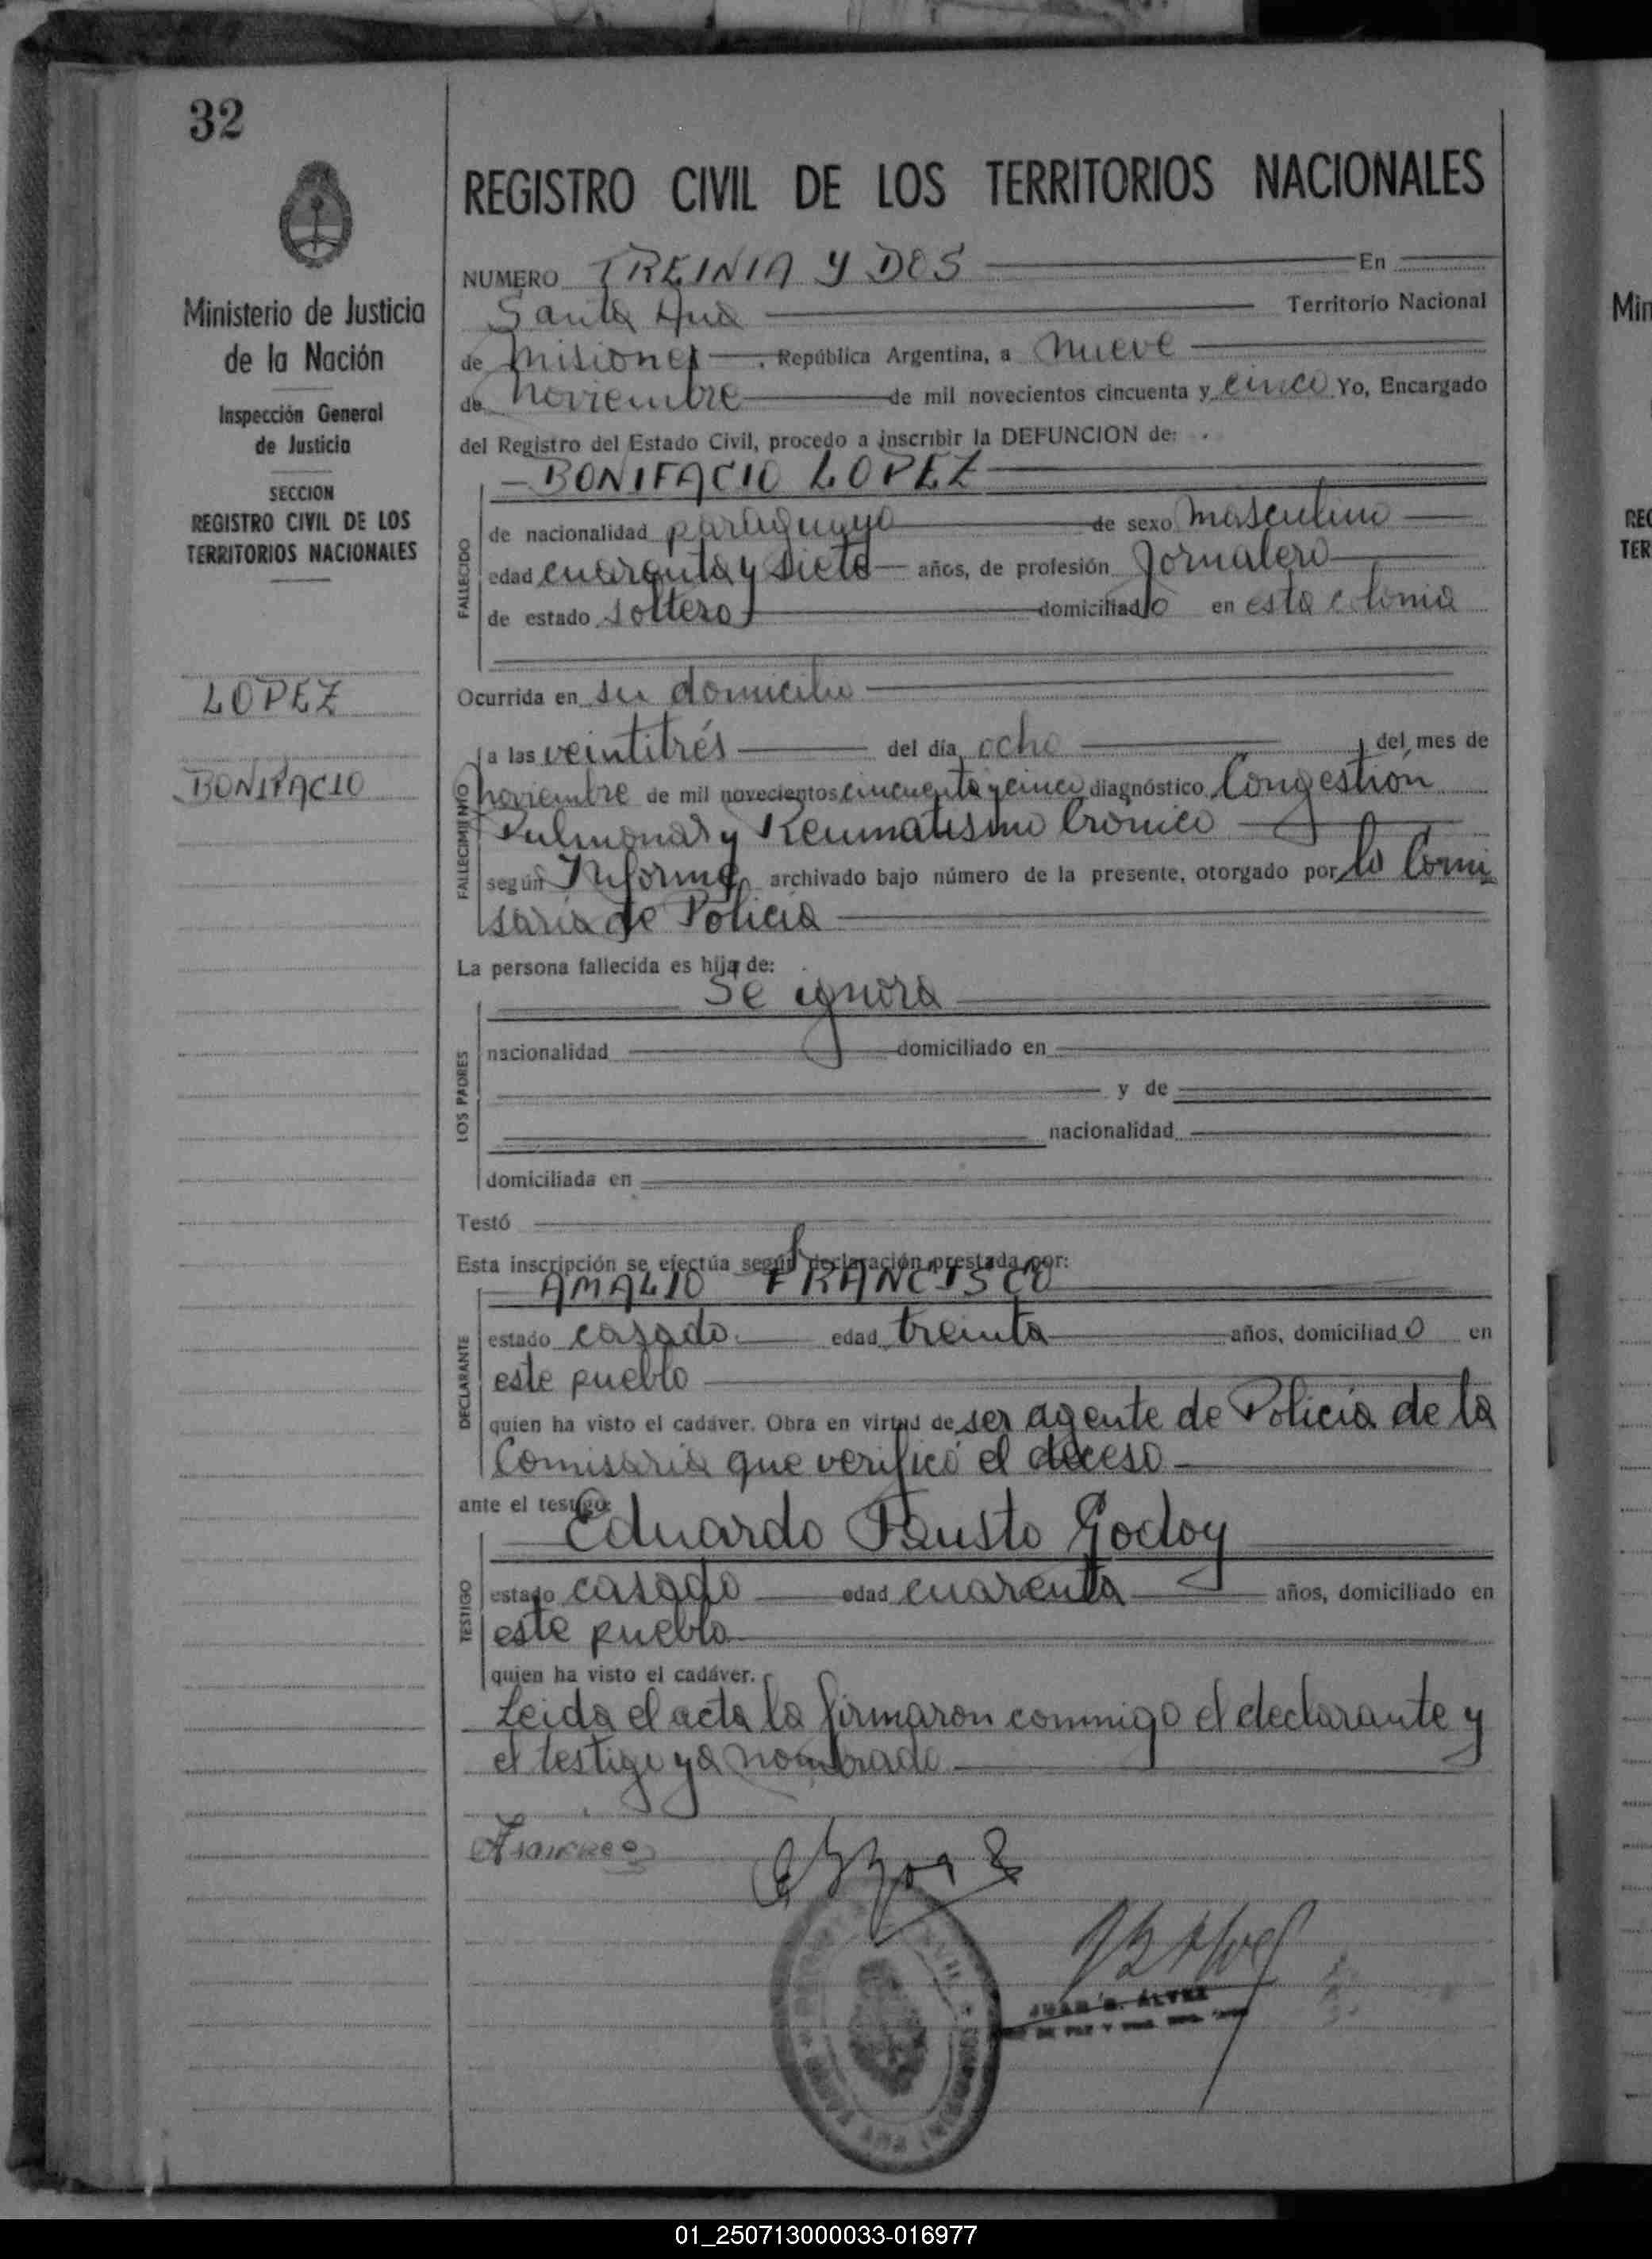 32
Ministerio de Justicia
de la Nación
Inspección General
de Justicia
SECCION
REGISTRO CIVIL DE LOS
TERRITORIOS NACIONALES
LOPEZ
BONIFACIO
REGISTRO CIVIL DE LOS TERRITORIOS NACIONALES
NUMERO TREINTA Y DOS En
Santa Ana Territorio Nacional
de Misiones, República Argentina, a nueve
de noviembre de mil novecientos cincuenta y cinco Yo, Encargado
del Registro del Estado Civil, procedo a inscribir la DEFUNCION de:
BONIFACIO LOPEZ
FALLECIDO
de nacionalidad paraguaya de sexo masculino
edad cuarenta y siete años, de profesión Jornalero
de estado soltero domiciliado en esta colonia
Ocurrida en su domicilio
FALLECIMIENTO
a las veintitrés del día ocho del mes de
noviembre de mil novecientos cincuenta y cinco diagnóstico Congestión
Pulmonar y Reumatismo Crónico
según Informe archivado bajo número de la presente, otorgado por la Comi
saria de Policía
La persona fallecida es hija de:
Se ignora
LOS PADRES
nacionalidad domiciliado en
y de
nacionalidad
domiciliada en
Testó
Esta inscripción se efectúa según declaración prestada por:
AMALIO FRANCISCO
DECLARANTE
estado casado edad treinta años, domiciliado en
este pueblo
quien ha visto el cadáver. Obra en virtud de ser agente de Policía de la
Comisaría que verificó el deceso
ante el testigo:
Eduardo Fausto Godoy
TESTIGO
estado casado edad cuarenta años, domiciliado en
este pueblo
quien ha visto el cadáver.
Leida el acta la firmaron conmigo el declarante y
el testigo ya nombrado
JUAN B. ALVEZ
Min
REG
TER
01_250713000033-016977